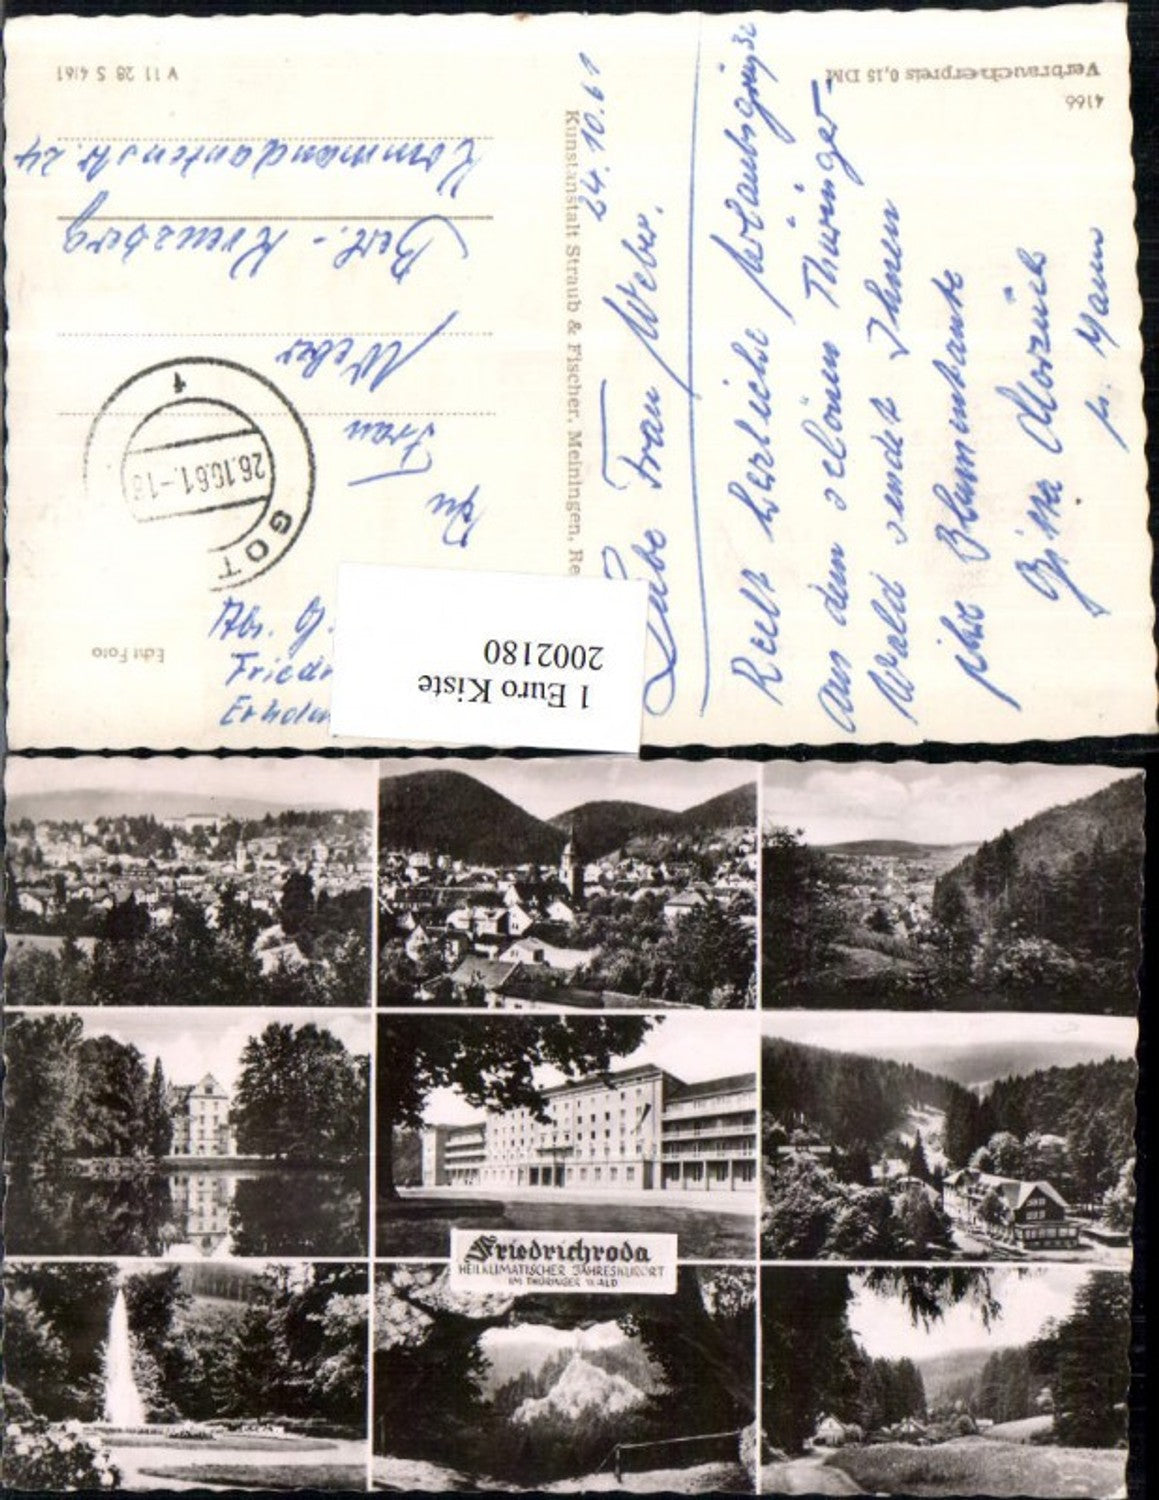 4166
Verbraucherpreis 0,15 DM
24.10.61
Liebe Frau Weber.
Recht herzliche Urlaubsgrüße
aus dem schönen Thüringer-
Wald sendet Ihnen
ihre
u. Mann
Kunstanstalt Straub & Fischer, Meiningen, Re
V 11 28 S 4/61
Echt Foto
Abs. G.
Friedr
Erholu
GOT
26.10.61.-18
1
An
Frau
Weber
Berl.-Kreuzberg
Kommandantenstr. 24
1 Euro Kiste
2002180
Friedrichroda
HEILKLIMATISCHER JAHRESKURORT
IM THÜRINGER WALD